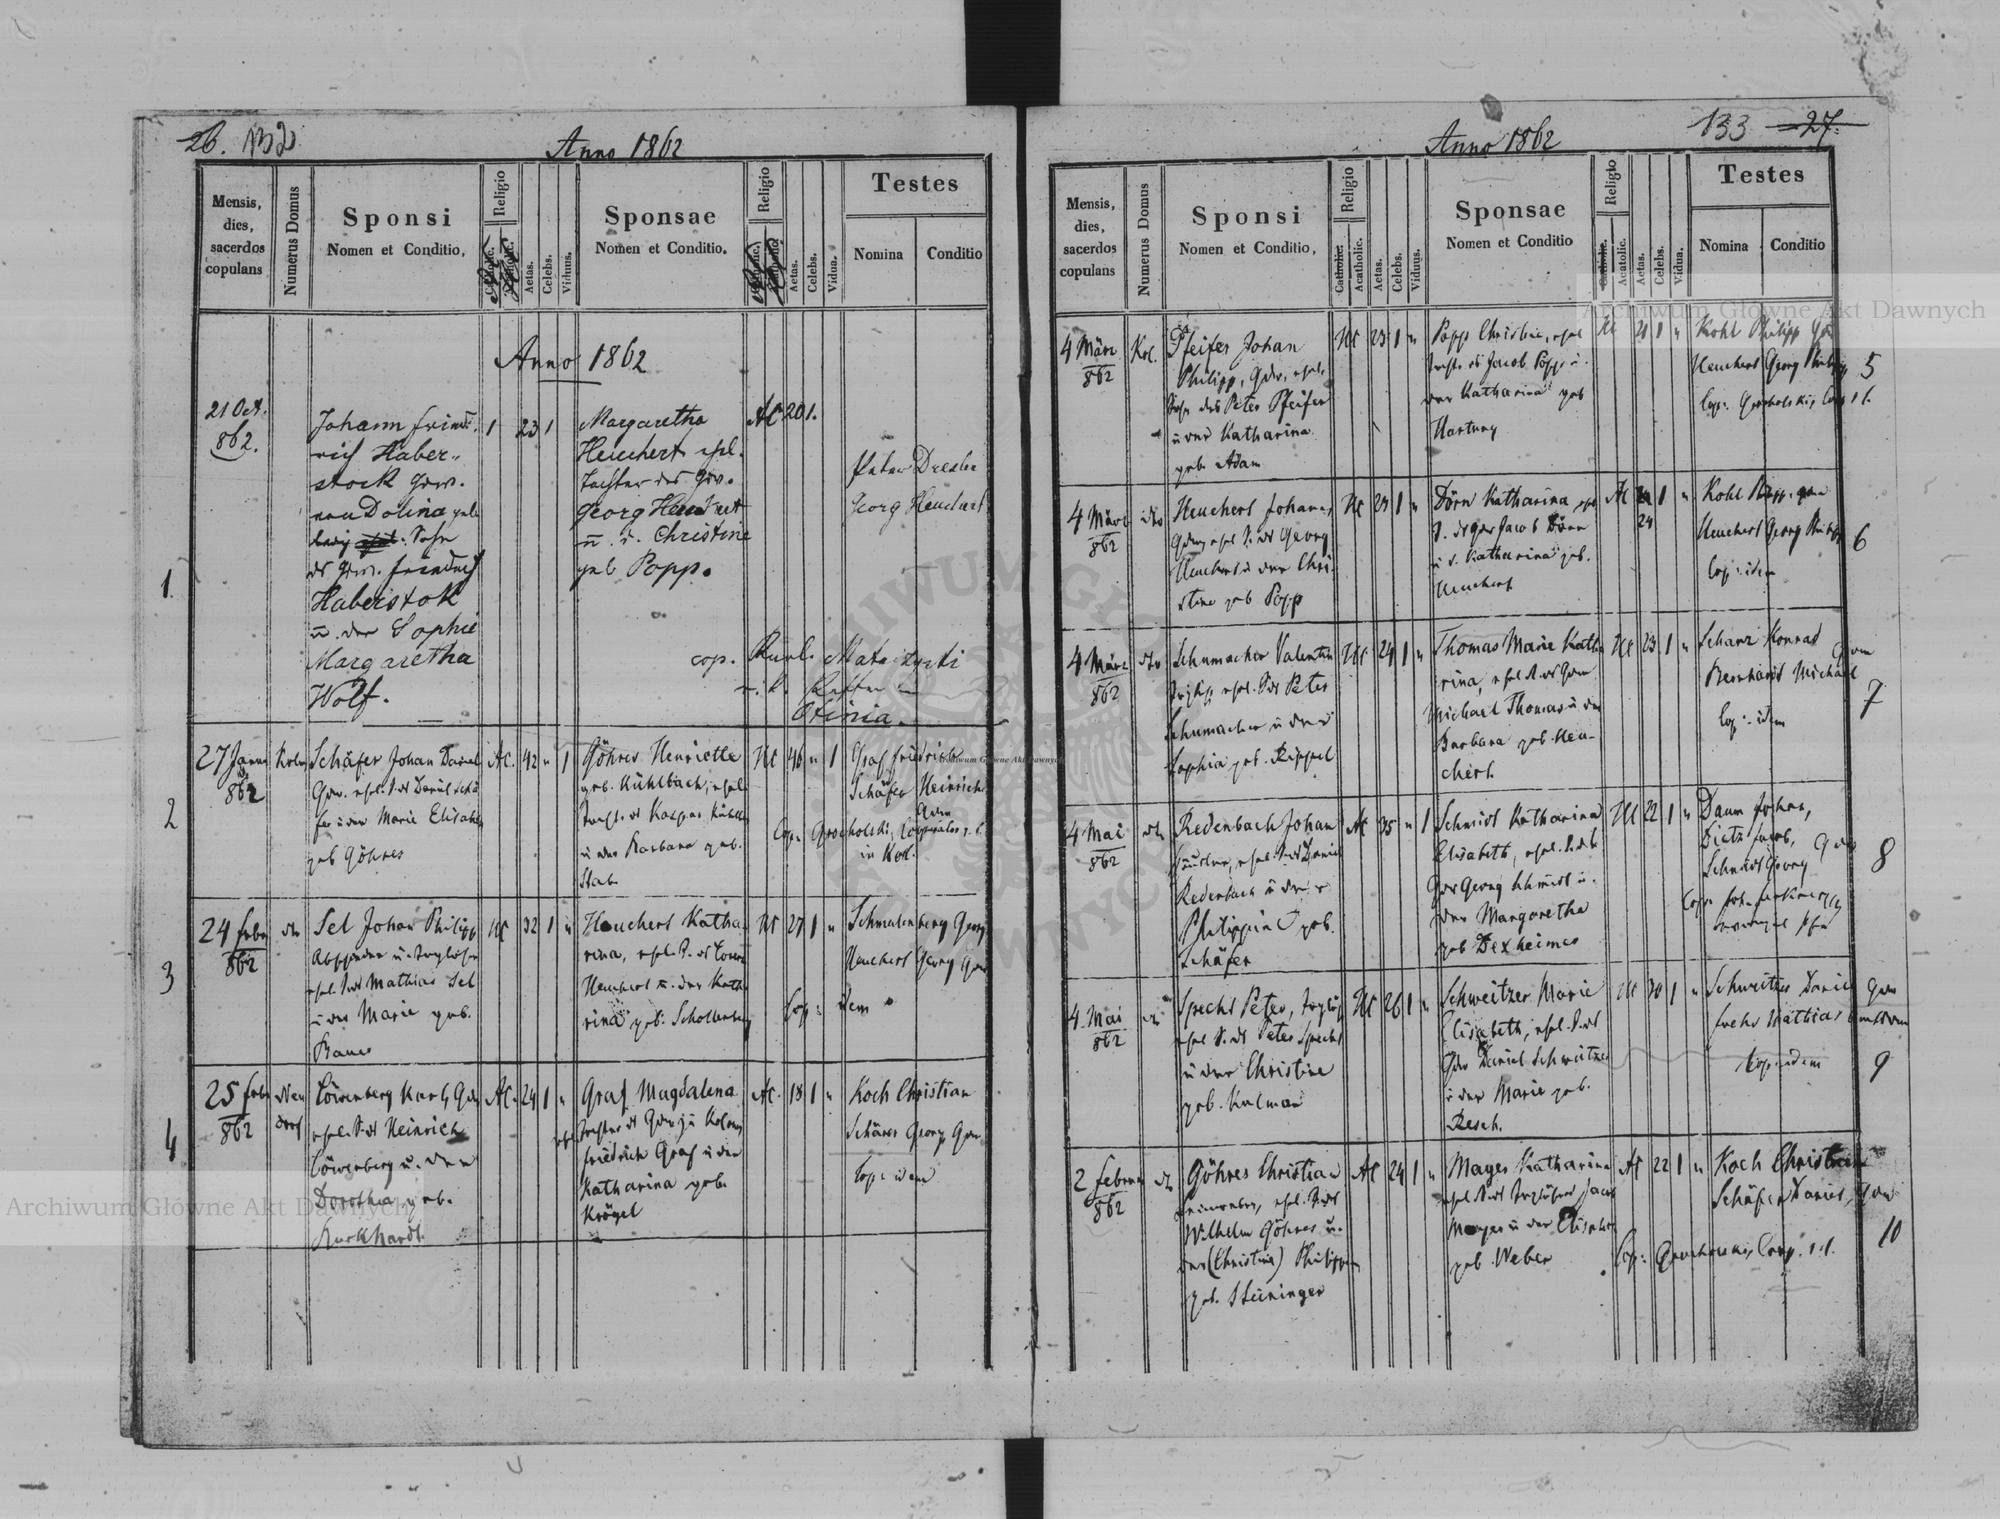 26. 132
Anno 1862
Mensis,
dies,
sacerdos
copulans
Numerus Domus
Sponsi
Nomen et Conditio,
Religio
Aetas.
Celebs.
Viduus.
Sponsae
Nomen et Conditio.
Religio
Aetas.
Celebs.
Vidua.
Testes
Nomina
Conditio
Anno 1862
1.
21 Oct.
862.
Johann Fried-
rich Haber-
stock Grw.
von Dolina geb
Sohn
ds Grw. Friedrich
Haberstok
u. der Sophie
Margaretha
Wolf.
1 23 1
Margaretha
Heuchert ehl.
Tochter des Grw.
Georg Heuchert
u. d. Christine
geb Popp.
AC 20 1.
Peter Drexler
Georg Heuchert
cop. Rud.
Otinia.
2
27 Janu
862
Schäfer Johan Daniel
Grw. ehel. S. ds Daniel Schä
fer u der Marie Elisabeth
geb Göhres
AC. 42 " 1
Göhres Henriette
geb. Kühlbach, ehel.
Tocht. ds Kaspar
u der Barbara geb.
Stab
AC 46 " 1
Graf Friedrich
Schäfer Heinrich
Grw
Cop: Grocholski, Cooperator r. l.
in Kol.
3
24 Febr
862
dto
Sel Johan Philipp
ehel. S. ds Mathias Sel
u der Marie geb.
Bauer
AC 32 1 "
Heuchert Katha-
rina, ehel. T. ds
Heuchert u. der Katha
rina geb. Schollenberg
AC 27 1 "
Schmalenberg Georg
Heuchert Georg Grw
Cop: idem
4
25 Febr
862
Neu
dorf
Löwenberg Karl, Grw
ehel. S. ds Heinrich
Löwenberg u. der
Dorothea geb.
Burkhardt
AC. 24 1 "
Graf Magdalena
ehel Tochter ds Grw zu Kolomea
Friedrich Graf u der
Katharina geb.
Krögel
AC. 18 1 "
Koch Christian
Schärer Georg Grw.
Cop: idem
133 27.
Anno 1862
Mensis,
dies,
sacerdos
copulans
Numerus Domus
Sponsi
Nomen et Conditio,
Religio
Catholic.
Acatholic.
Aetas.
Celebs.
Viduus.
Sponsae
Nomen et Conditio
Religio
Catholic.
Acatolic.
Aetas.
Celebs.
Vidua.
Testes
Nomina
Conditio
4 März
862
Kol.
Pfeifer Johan
Philipp, Grw. ehel.
Sohn des Peter Pfeifer
u der Katharina
geb. Adam
AC 23 1 "
Popp Christine, ehel
Tocht. ds Jacob Popp u.
der Katharina geb
Hartung
AC 21 1 "
Kohl Philipp Grw
Heuchert Georg Philipp
Cop: Grocholski, Coop r. l.
5
4 März
862
dto
Heuchert Johannes
Grw ehel S. ds Georg
Heuchert u der Chri-
stine geb Popp
AC 23 1 "
Dörn Katharina ehel
T. ds Grw Jacob Dörn
u d. Katharina geb.
Heuchert
AC 24 1 "
Kohl Philipp Grw
Heuchert Georg Philipp
Cop: idem
6
4 März
862
dto
Schumacher Valentin
ehel. S. ds Peter
Schumacher u der
Sophia geb. Rippel
AC 24 1 "
Thomas Marie Katha
rina, ehel T. ds Grw
Michael Thomas u der
Barbara geb. Heu-
chert.
AC 23 1 "
Schanz Konrad
Grw
Bernhardt Michael
Cop: idem
7
4 Mai
862
dto
Redenbach Johan
ehel. S. ds Daniel
Redenbach u der
Philippine geb.
Schäfer
AC 35 " 1
Schmidt Katharina
Elisabeth, ehel. T. ds
Grw Georg Schmidt u.
der Margaretha
geb Dexheimer
AC 22 1 "
Daum Johan,
Dietz Jacob, Grw
Schmidt Georg
8
4 Mai
862
dto
Specht Peter,
ehel S. ds Peter Specht
u der Christine
geb. Kulman
AC 26 1 "
Schweitzer Marie
Elisabeth, ehel. T. ds
Grw Daniel Schweitzer
u der Marie geb.
Resch.
AC 30 1 "
Schweitzer Daniel Grw
Mathias
Cop: idem
9
2 Februar
862
dto
Göhres Christian
ehel. S. ds
Wilhelm Göhres u.
der (Christine) Philippine
geb. Steininger
AC 24 1 "
Mayer Katharina
ehel T. ds Jacob
Mayer u der Elisabeth
geb. Weber
AC 22 1 "
Koch Christian
Schäfer Daniel, Grw
Cop: Grocholski, Coop. r. l.
10
Archiwum Główne Akt Dawnych
Archiwum Główne Akt Dawnych
Archiwum Główne Akt Dawnych